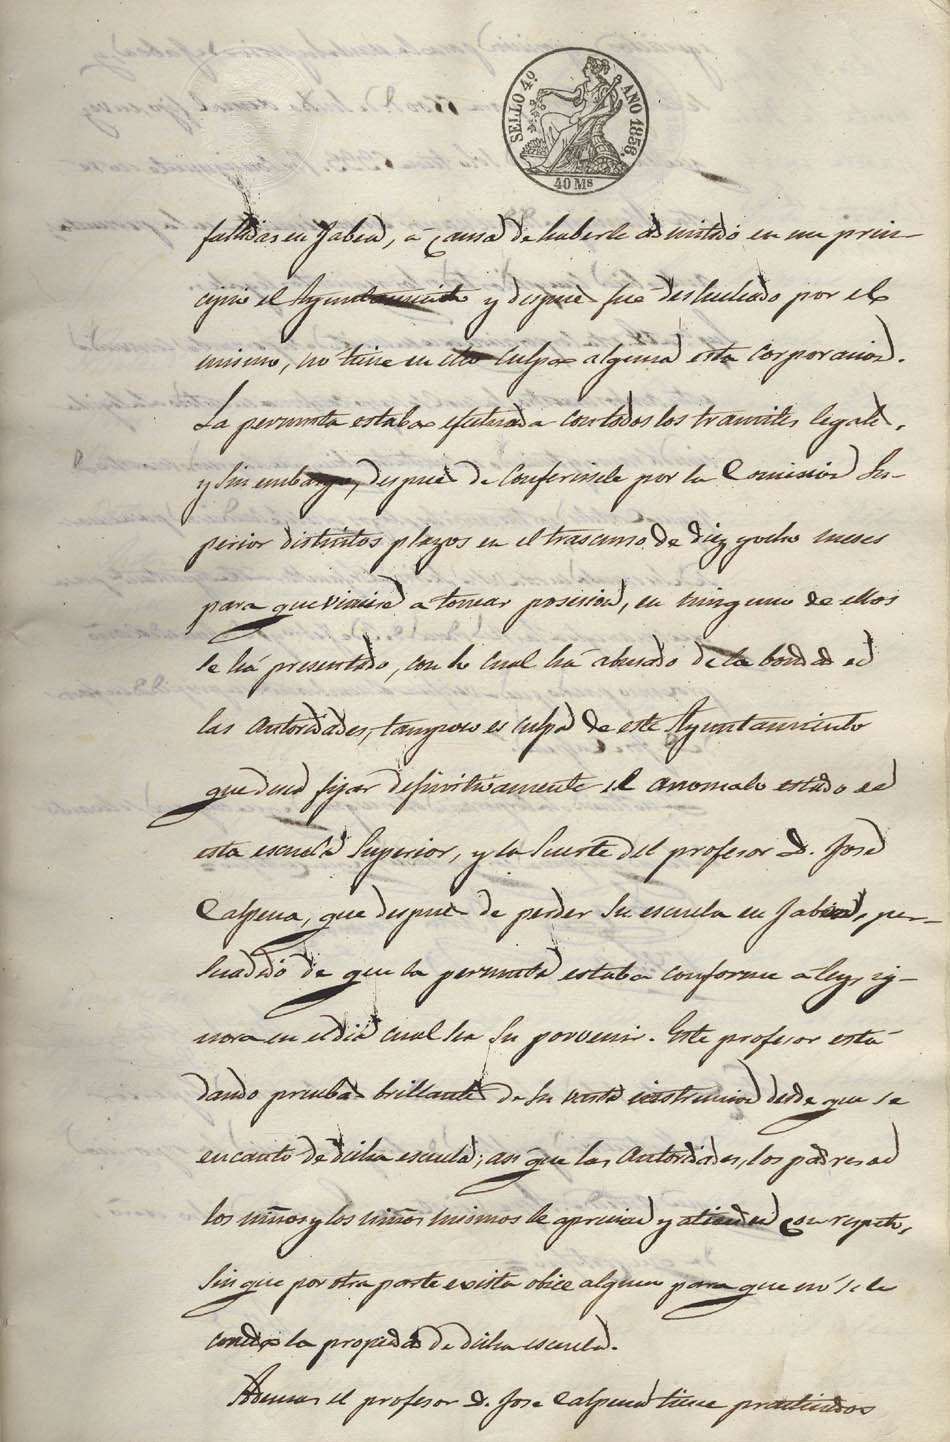 SELLO 4º AÑO 1856.
40 Ms
fallidas en Jabea, á causa de haberle admitido en un prin-
cipio el Ayuntamiento y despues fue deshechado por el
mismo, no tiene en ello culpa alguna esta corporacion.
La permuta estaba efectuada con todos los tramites legales,
y sin embargo, despues de conferirsele por la Comision Su-
perior distintos plazos en el trascurso de diez y ocho meses
para que viniera a tomar posesion, en ninguno de ellos
se há presentado, con lo cual há abusado de la bondad de
las autoridades, tampoco es culpa de este Ayuntamiento
que desea fijar definitivamente el anomalo estado de
esta escuela Superior, y la suerte del profesor D. José
Calpena, que despues de perder su escuela en Jabea, per-
suadido de que la permuta estaba conforme a ley, ig-
nora en el dia cual sea su porvenir. Este profesor está
dando pruebas brillantes de su vasta instruccion desde que se
encargó de dicha escuela; asi que las autoridades, los padres de
los niños y los niños mismos le aprecian y atienden con respeto,
sin que por otra parte exista obice alguno para que no se le
conceda la propiedad de dicha escuela.
Ademas el profesor D. José Calpena tiene practicados